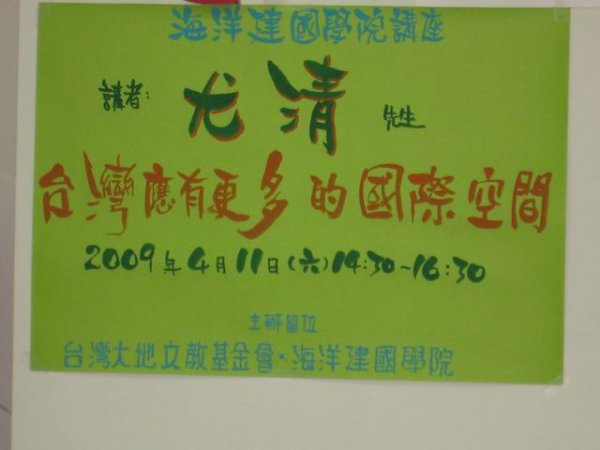 海洋建國學院講座
講者: 尤清 先生
台灣應有更多的國際空間
2009年4月11日(六)14:30~16:30
主辦單位
台灣大地文教基金會×海洋建國學院